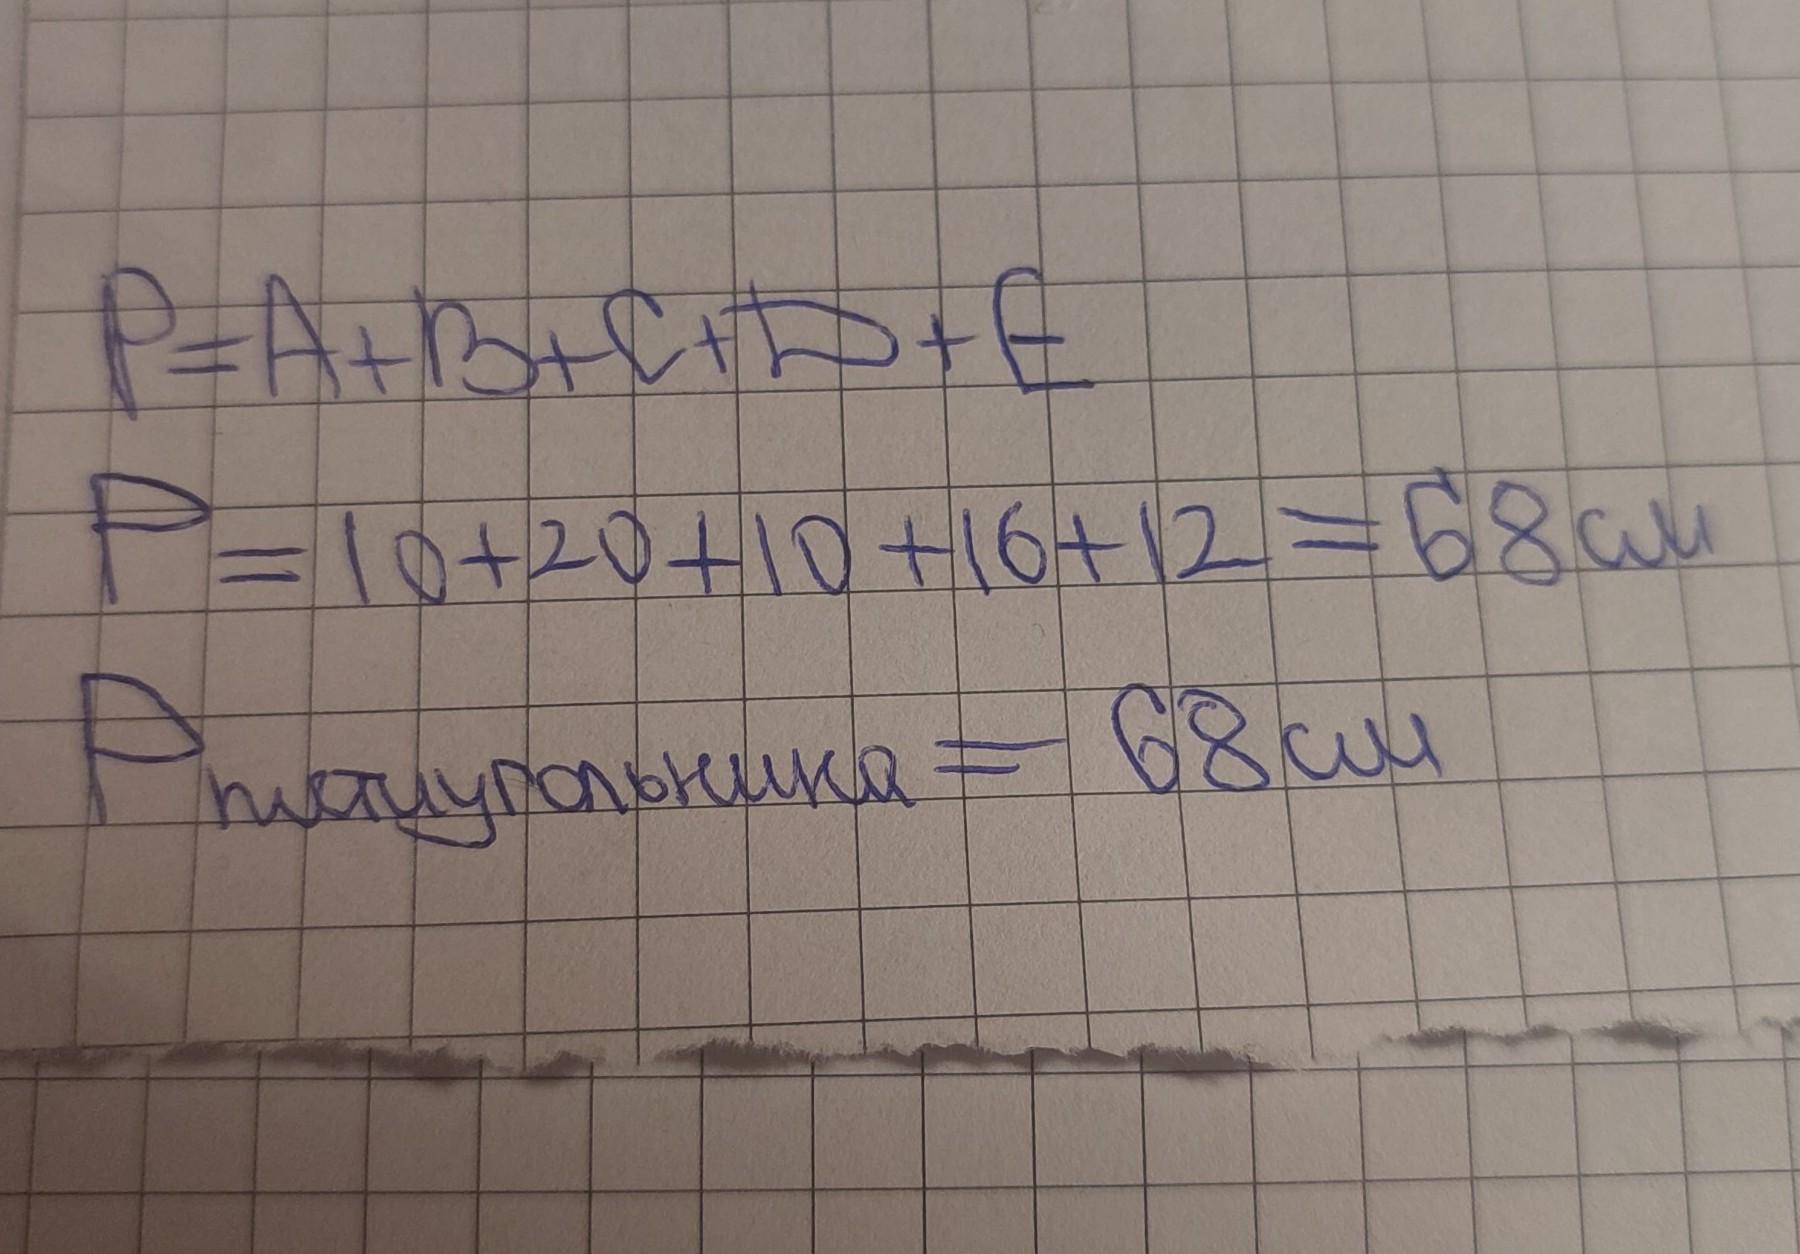 P=A+B+C+D+E
P=10+20+10+16+12=68см
Pпятиугольника=68см